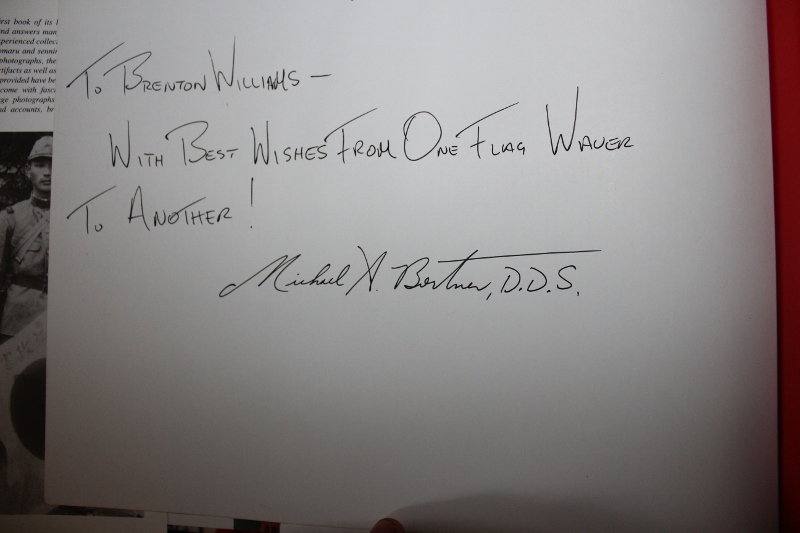 rst book of its
nd answers man
perienced collec
maru and sennin
photographs, the
rtifacts as well as
provided have be
come with fasc
ge photographs
d accounts, br
To Brenton Williams –
With Best Wishes From One Flag Waver
To Another!
Michael A. Bortner, D.D.S.